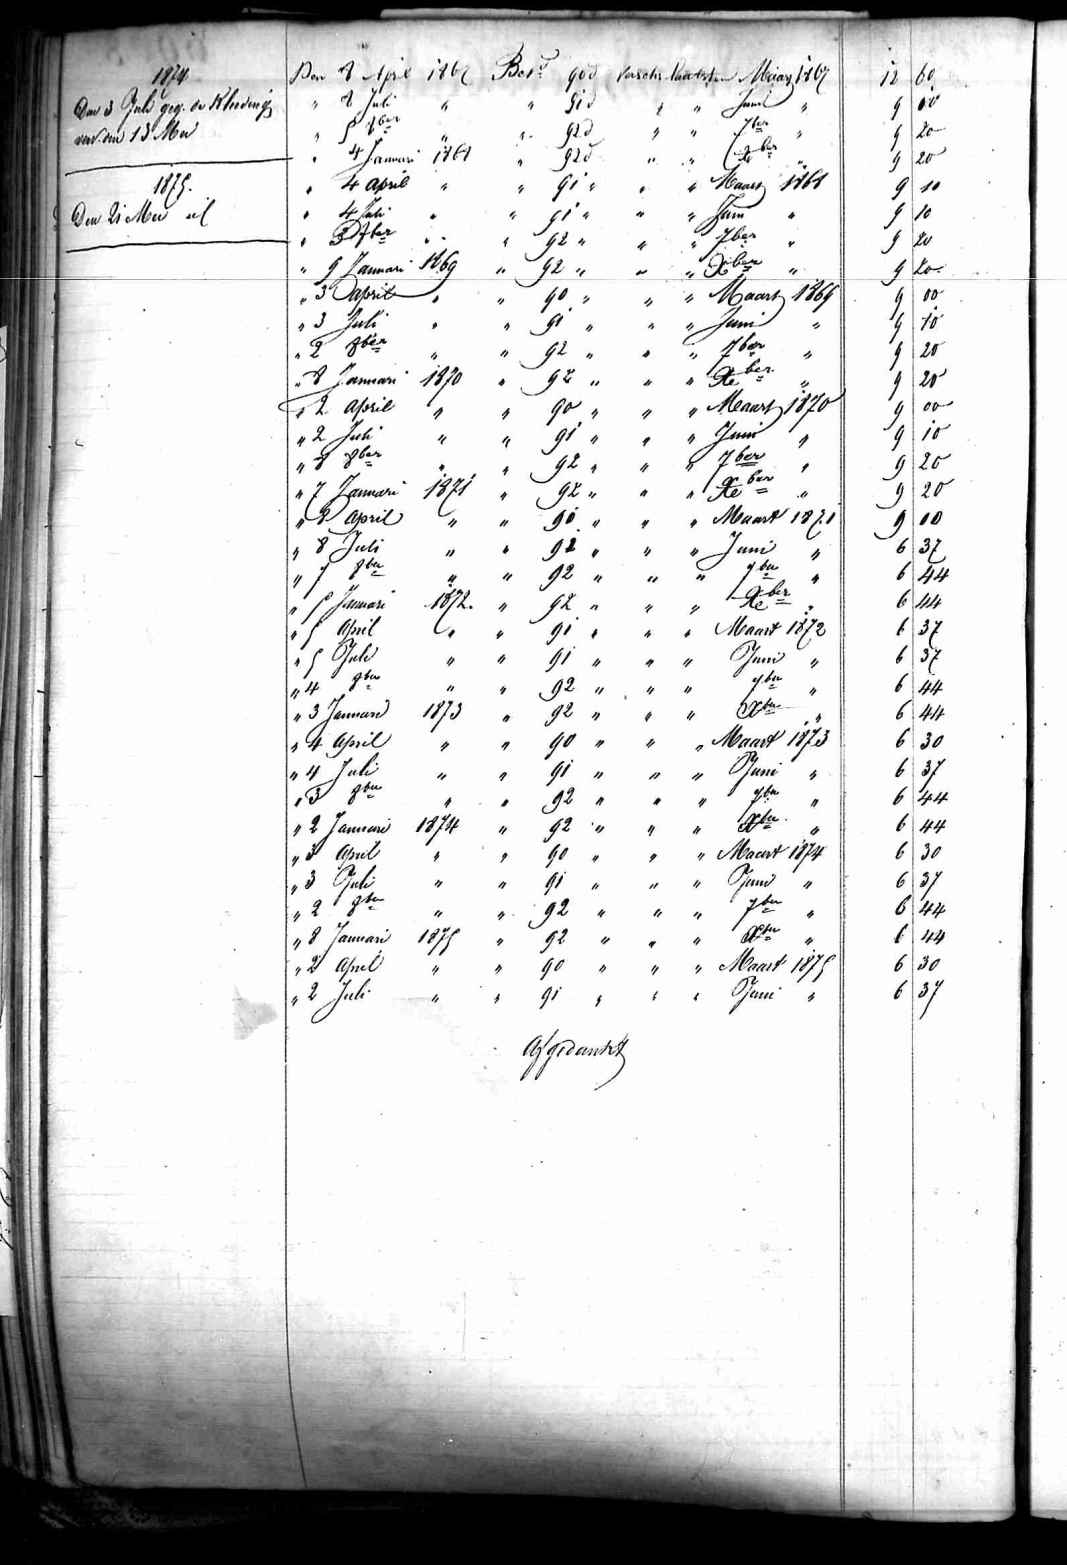 1874
Den 3 Juli geg. de Kleeding
van den 13 Mei
1875.
Den 21 Mei id
Den 8 April 1867 Best. 90d Maart 1867 12 60
" 8 Juli " " 91d " " Juni " 9 00
" 5 8ber " " 92d " " 7ber " 9 20
" 4 Januari 1868 " 92d " " Xber " 9 20
" 4 April " " 91 " " " Maart 1868 9 10
" 4 Juli " " 91 " " " Juni " 9 10
" 3 8ber " " 92 " " " 7ber " 9 20
" 9 Januari 1869 " 92 " " " Xber " 9 20
" 3 April " " 90 " " " Maart 1869 9 00
" 3 Juli " " 91 " " " Juni " 9 10
" 2 8ber " " 92 " " " 7ber " 9 20
" 8 Januari 1870 " 92 " " " Xber " 9 20
" 2 April " " 90 " " " Maart 1870 9 00
" 2 Juli " " 91 " " " Juni " 9 10
" 8 8ber " " 92 " " " 7ber " 9 20
" 7 Januari 1871 " 92 " " " Xber " 9 20
" 8 April " " 90 " " " Maart 1871 9 00
" 8 Juli " " 91 " " " Juni " 6 37
" 7 8ber " " 92 " " " 7ber " 6 44
" 5 Januari 1872. " 92 " " " Xber " 6 44
" 5 April " " 91 " " " Maart 1872 6 37
" 5 Juli " " 91 " " " Juni " 6 37
" 4 8ber " " 92 " " " 7ber " 6 44
" 3 Januari 1873 " 92 " " " Xber " 6 44
" 4 April " " 90 " " " Maart 1873 6 30
" 4 Juli " " 91 " " " Juni " 6 37
" 3 8ber " " 92 " " " 7ber " 6 44
" 2 Januari 1874 " 92 " " " Xber " 6 44
" 3 April " " 90 " " " Maart 1874 6 30
" 3 Juli " " 91 " " " Juni " 6 37
" 2 8ber " " 92 " " " 7ber " 6 44
" 8 Januari 1875 " 92 " " " Xber " 6 44
" 2 April " " 90 " " " Maart 1875 6 30
" 2 Juli " " 91 " " " Juni " 6 37
Afgedankt